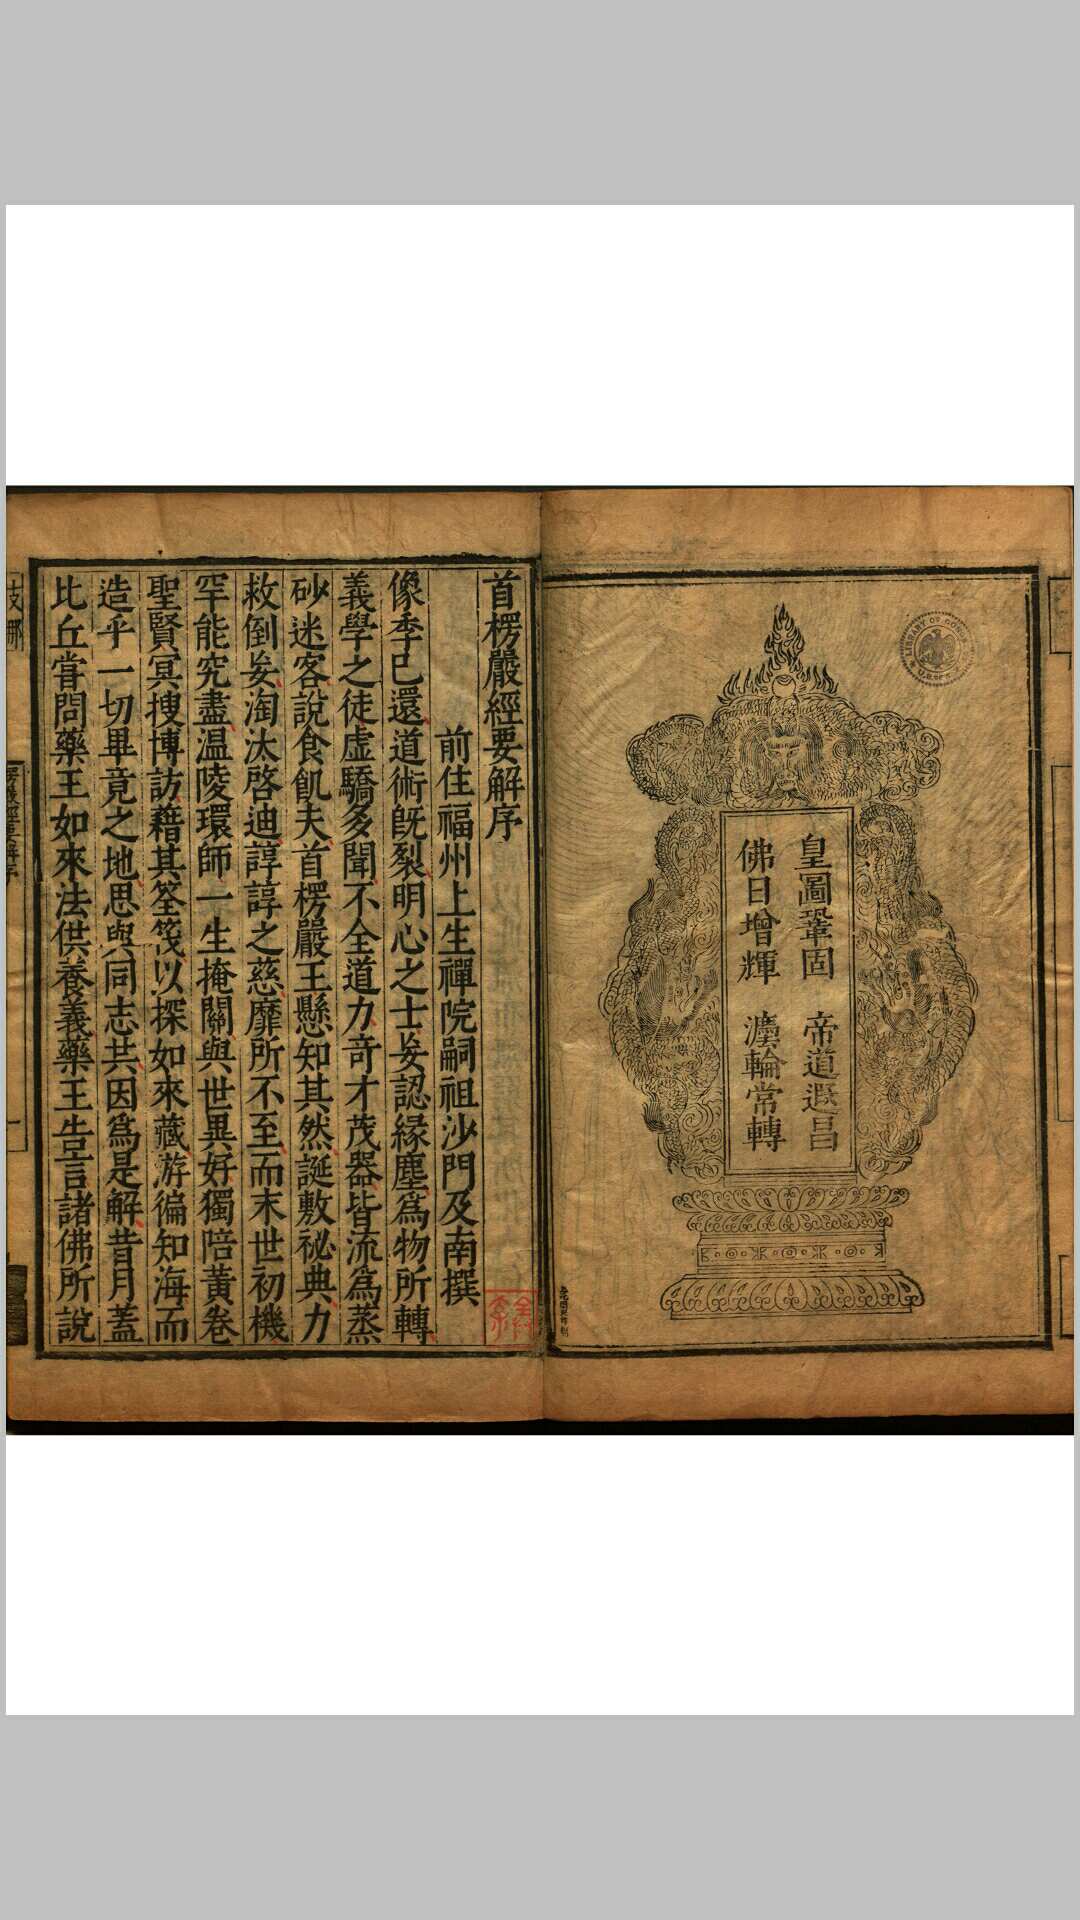 皇圖鞏固 帝道遐昌
佛日增輝 灋輪常轉
LIBRARY OF CONGRESS
首楞嚴經要解序
前住福州上生禪院嗣祖沙門及南撰
像季已還道術既裂明心之士妄認緣塵爲物所轉
義學之徒虛驕多聞不全道力奇才茂器皆流爲蒸
砂迷客說食飢夫首楞嚴王懸知其然誕敷祕典力
救倒妄淘汰啓迪諄諄之慈靡所不至而末世初機
罕能究盡温陵環師一生掩關與世異好獨陪黃卷
聖賢冥搜博訪藉其筌筏以探如來藏游徧知海而
造乎一切畢竟之地思與同志共因爲是解昔月蓋
比丘嘗問藥王如來法供養義藥王告言諸佛所說